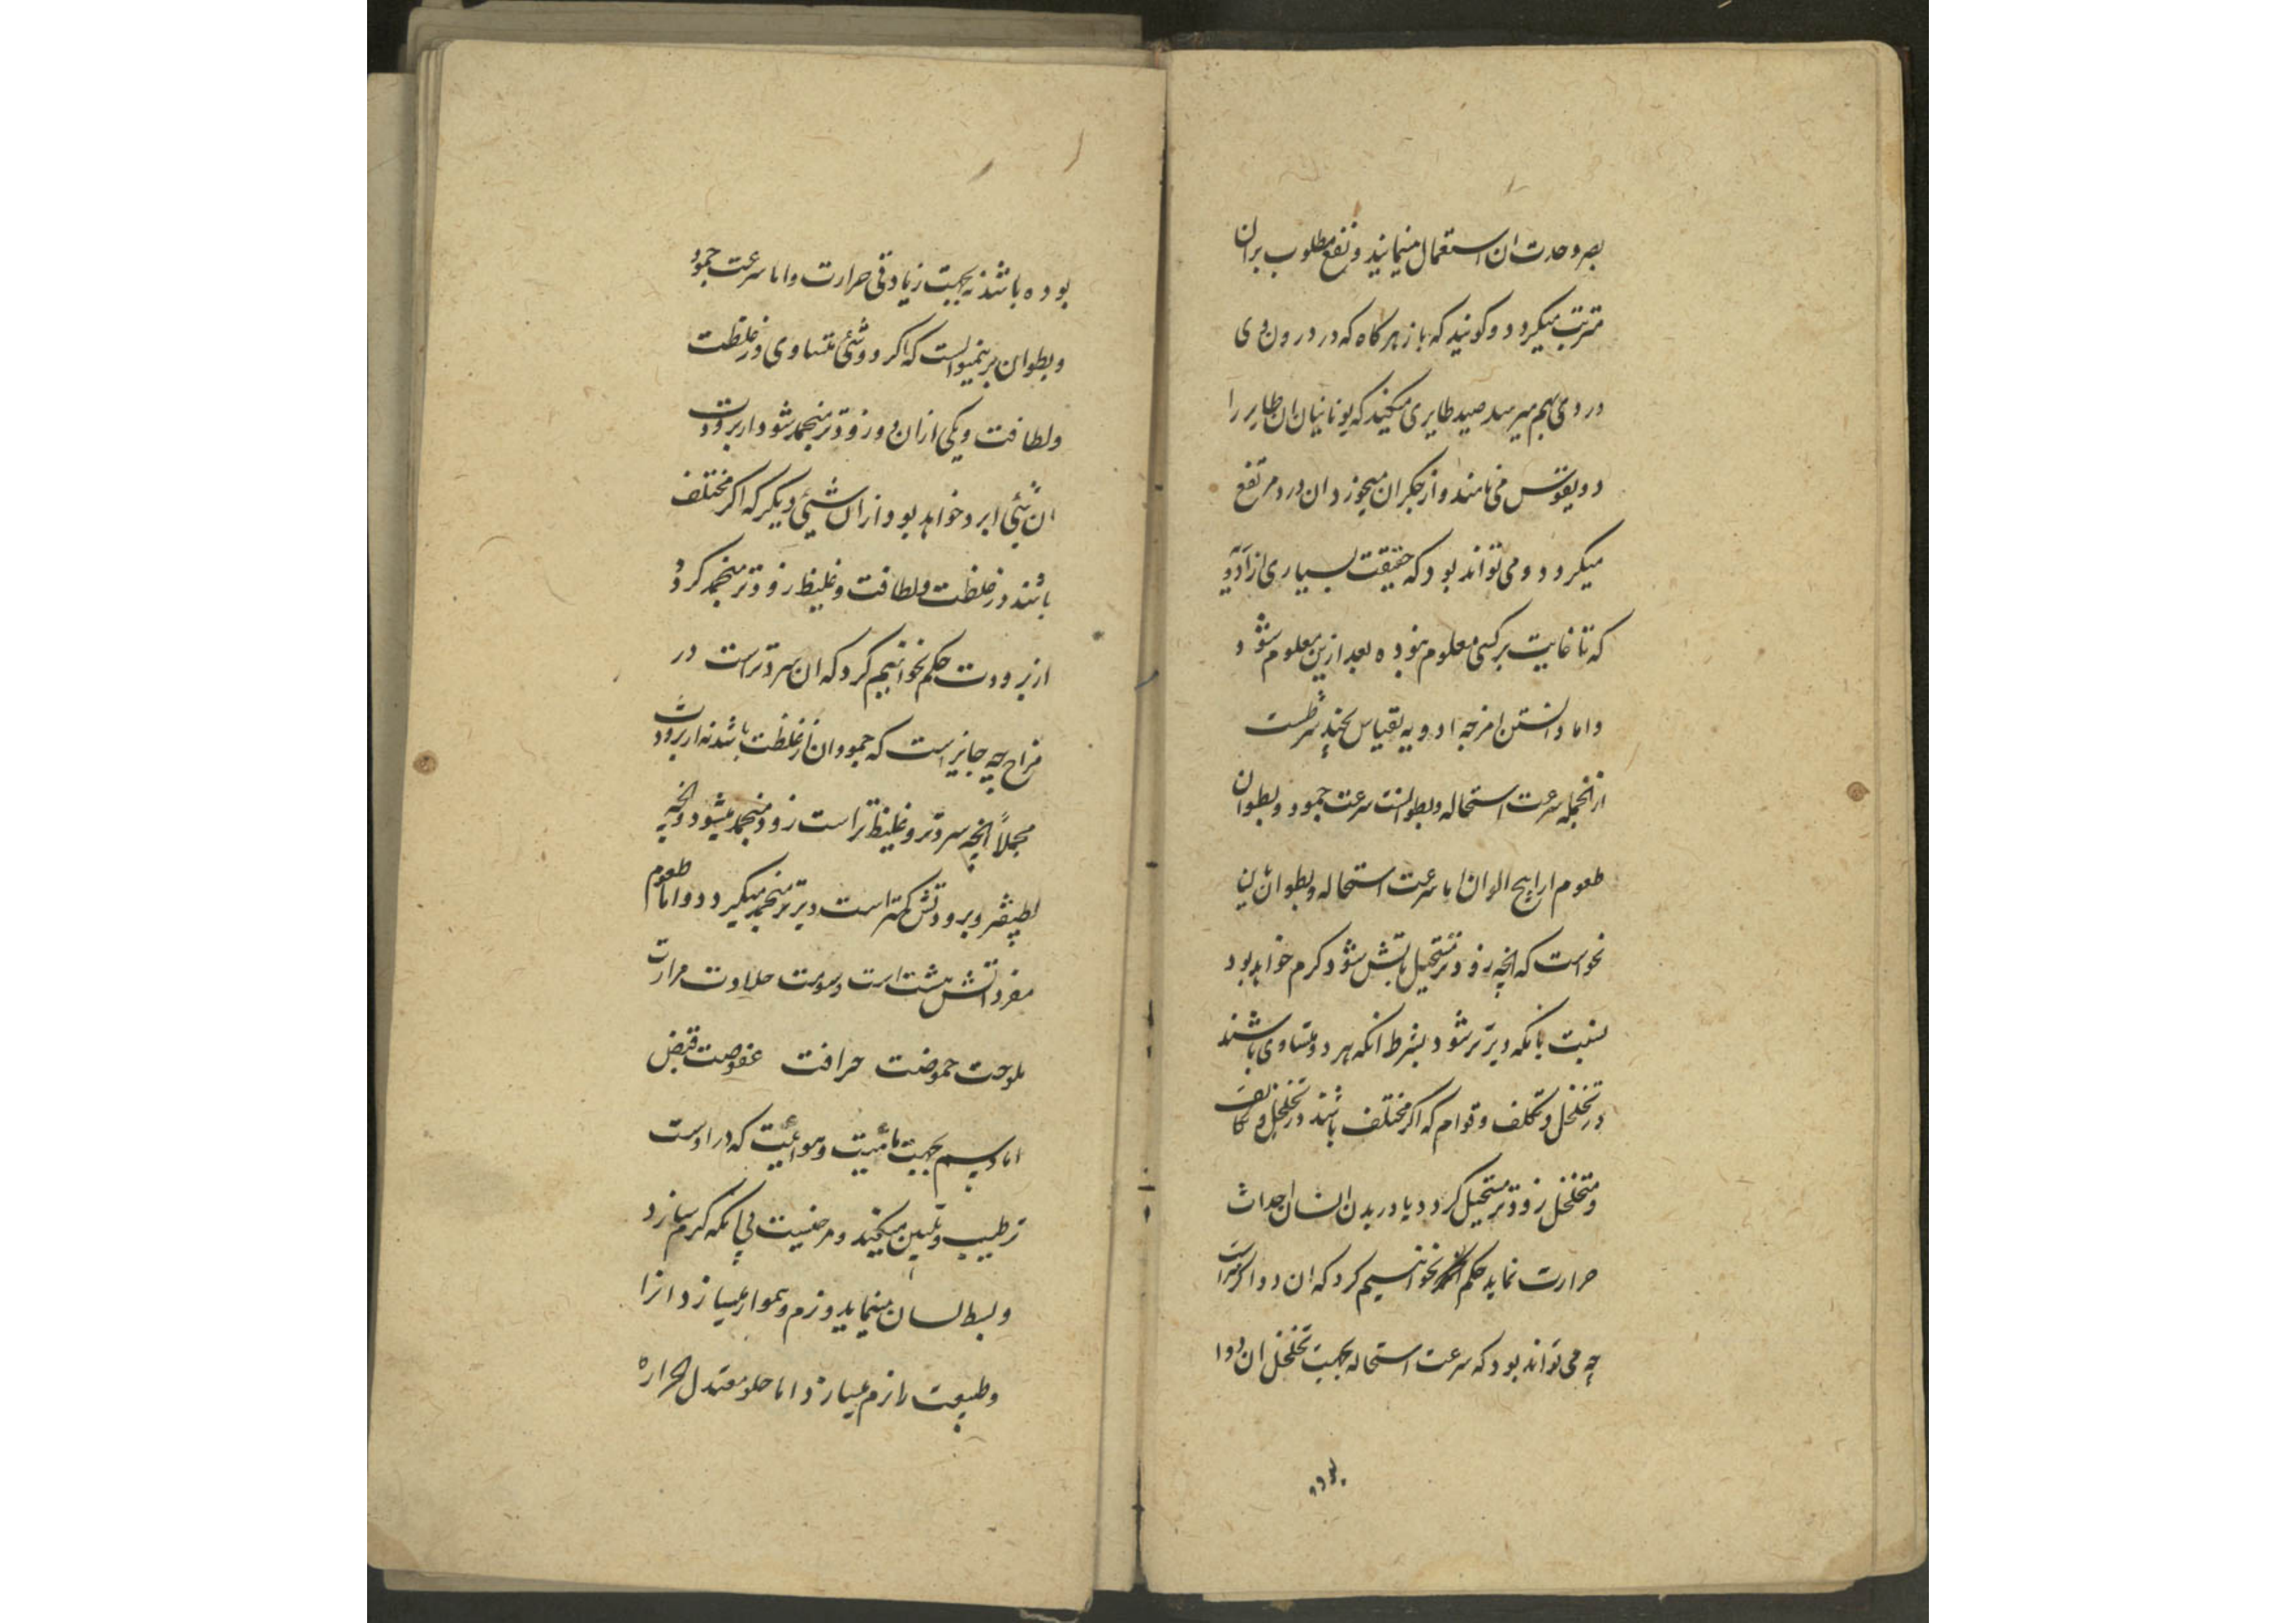 بصر و حدت ان استعمال مینمایند و نفع مطلوب بران
مترتب میکردد و کویند که باز هر کاه که در درون وی
دردی بهم میرسد صید طایری میکند که یونانیان ان طایر را
می نامند و از جکر ان میخورد ان درد مرتفع
میکردد و می تواند بود که حقیقت بسیاری از ادویه
که تا غایت بر کسی معلوم نبوده بعد ازین معلوم شود
و اما دانستن امزجه ادویه بقیاس بچند شرطست
از انجمله سرعت استحاله و بطو انست سرعت جمود و بطو ان
طعوم اراییح الوان اما سرعت استحاله و بطو ان باین
نحو است که انچه زودتر مستحیل باتش شود کرم خواهد بود
نسبت بانکه دیرتر شود بشرط انکه هر دو متساوی باشند
در تخلخل و تکاثف و قوام که اکر مختلف باشند در تخلخل و تکاثف
و متخلخل زودتر مستحیل کردد یا در بدن انسان احداث
حرارت نماید حکم نخواهیم کرد که ان دوا کرمتر است
چه می تواند بود که سرعت استحاله بجهت تخلخل ان دوا
بوده
بوده باشد نه بجهت زیادتی حرارت و اما سرعت جمود
و بطو ان برینمنوالست که اکر دو شئ متساوی در غلظت
و لطافت و یکی از ان دو زودتر منجمد شود از برودت
ان شئی ابرد خواهد بود از ان شیئی دیکر که اکر مختلف
باشند در غلظت و لطافت و غلیظ زودتر منجمد کردد
از برودت حکم نخواهیم کرد که ان سردتر است در
مزاج چه جایز است که جمود ان از غلظت باشد نه از برودت
مجملاً انچه سردتر و غلیظ تر است زود منجمد میشود و انچه
لطیفتر و برودتش کمتر است دیرتر منجمد میکردد و اما طعوم
مفرداتش هشت است دسومت حلاوت مرارت
ملوحت حموضت حرافت عفوصت قبض
اما دسم بجهت مائیت و هوائیت که در اوست
ترطیب و تلیین میکند و مرخیست بی انکه کرم سازد
و بسط لسان مینماید و نرم و هموار میسازد انرا
و طبیعت را نرم میسازد اما حلو معتدل الحراره